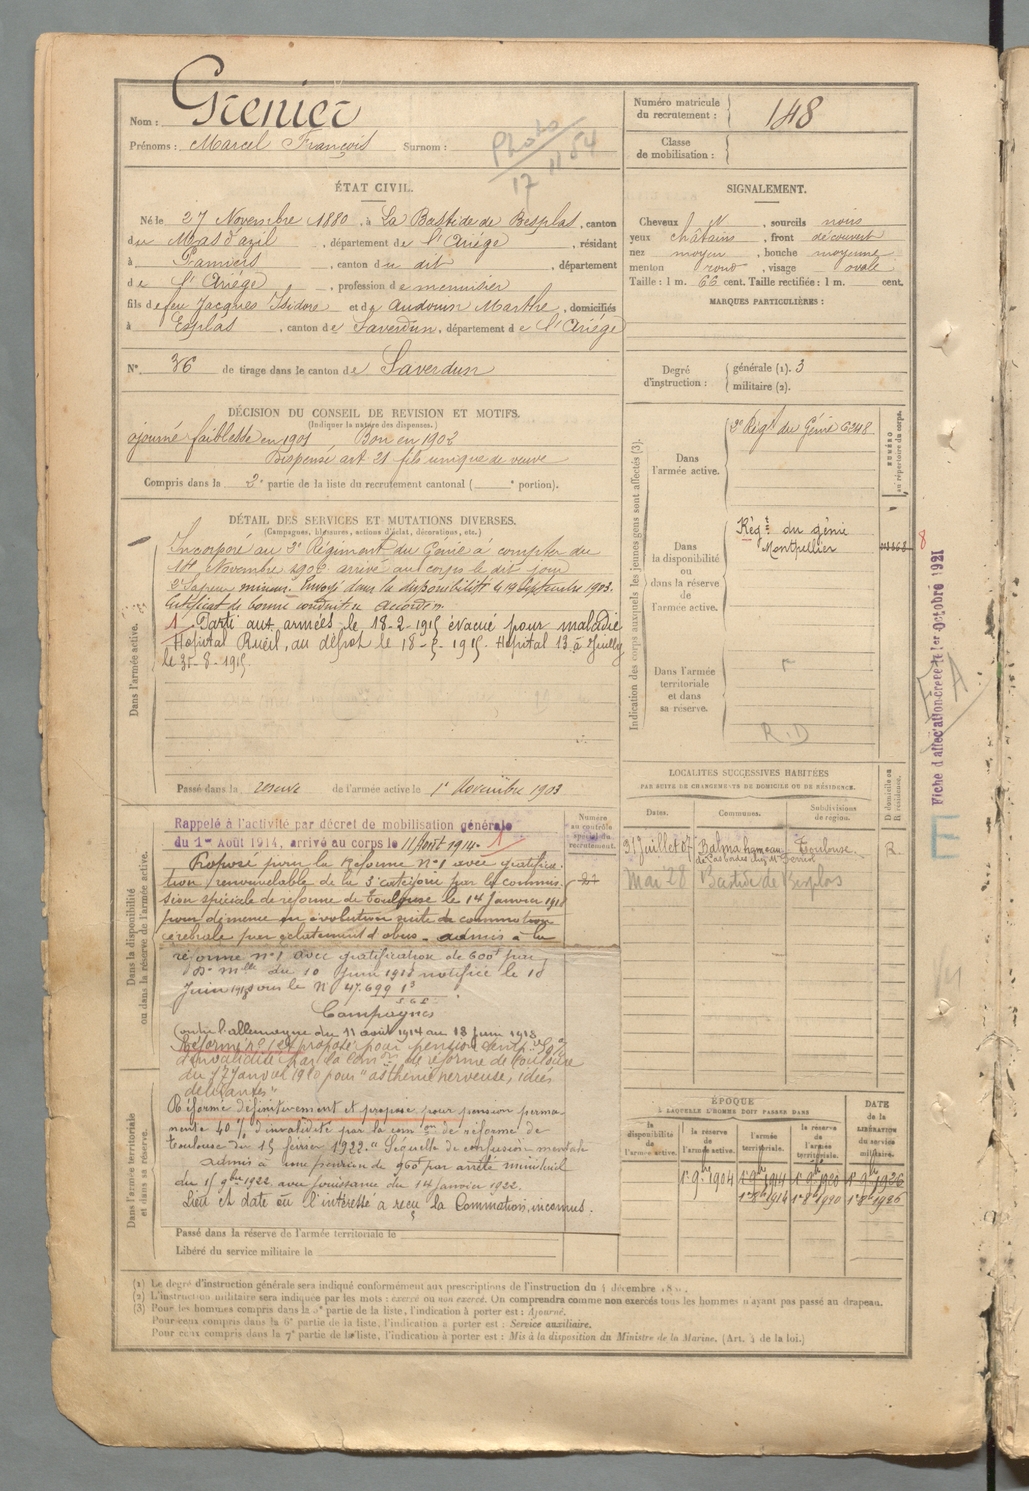 Nom : Grenier
Prénoms : Marcel François Surnom :
Photo 17 11 54
Numéro matricule du recrutement : 148
Classe de mobilisation :
ÉTAT CIVIL.
Né le 27 Novembre 1880, à La Bastide de Besplas, canton
du Mas d'azil, département de l'Ariége, résidant
à Pamiers, canton du dit, département
de l'Ariége, profession de menuisier
fils de feu Jacques Isidore et de Audouin Marthe, domiciliés
à Esplas, canton de Saverdun, département de l'Ariége
N° 36 de tirage dans le canton de Saverdun
SIGNALEMENT.
Cheveux N, sourcils noirs
yeux châtains, front découvert
nez moyen, bouche moyenne
menton rond, visage ovale
Taille : 1 m. 66 cent. Taille rectifiée : 1 m. cent.
MARQUES PARTICULIÈRES :
Degré d'instruction : générale (1). 3
militaire (2).
DÉCISION DU CONSEIL DE REVISION ET MOTIFS.
(Indiquer la nature des dispenses.)
ajourné faiblesse en 1901, Bon en 1902
Dispensé art. 21 fils unique de veuve
Compris dans la 2e partie de la liste du recrutement cantonal ( e portion).
DÉTAIL DES SERVICES ET MUTATIONS DIVERSES.
(Campagnes, blessures, actions d'éclat, décorations, etc.)
Dans l'armée active.
Incorporé au 2e Régiment du Génie à compter du
14 Novembre 1902 arrivé au corps le dit jour
2e Sapeur mineur. Envoyé dans la disponibilité le 19 Septembre 1903.
Certificat de bonne conduite accordé.
1 Parti aux armées le 18-2-1915 évacué pour maladie
Hôpital Rueil, au dépôt le 18-5-1915. Hopital 13 à Juilly
le 35-8-1915.
Passé dans la réserve de l'armée active le 1r Novembre 1903
Indication des corps auxquels les jeunes gens sont affectés (3).
NUMÉRO au répertoire du corps.
Dans l'armée active.
2e Régt du Génie 6248
Dans la disponibilité ou dans la réserve de l'armée active.
Régt du génie
Montpellier
Dans l'armée territoriale et dans sa réserve.
R.D
Fiche d'affectation créée le 1er Octobre 1921
8
A
E
LOCALITÉS SUCCESSIVES HABITÉES
PAR SUITE DE CHANGEMENTS DE DOMICILE OU DE RÉSIDENCE.
Dates. Communes. Subdivisions de région. D domicile ou R résidence.
31 Juillet 07 Balma hameau Toulouse R.
Mai 28 Bastide de Besplas
Dans la disponibilité ou dans la réserve de l'armée active.
Numéro au contrôle spécial du recrutement.
Rappelé à l'activité par décret de mobilisation générale
du 1er Août 1914, arrivé au corps le 11 Août 1914. 1
Proposé pour la Réforme N°1 avec gratifica-
tion renouvelable de la 5e catégorie par la commis-
sion spéciale de réforme de Toulouse le 14 Janvier 1918
pour démence en évolution suite de commotion
cérébrale par éclatement d'obus. admis à la
réforme n°1 avec gratification de 600f par
Don mlle du 10 Juin 1918 notifiée le 18
Juin 1918 sous le N° 47.699 13
Campagnes
Contre l'allemagne du 11 août 1914 au 18 Juin 1918
Réformé n°1 et proposé pour pension
d'invalidité par la comon de réforme de Toulouse
du 17 Janvier 1920 pour "asthénie nerveuse, idées
délirantes"
Réformé définitivement et proposé pour pension perma-
nente 40% d'invalidité par la comon de réforme de
Toulouse du 15 février 1922. "Séquelle de confusion mentale
admis à une pension de 960f par arrêté ministériel
du 15 9bre 1922 avec jouissance du 14 Janvier 1922.
Lieu et date où l'intéressé a reçu la Commotion, inconnus.
Dans l'armée territoriale et dans sa réserve.
Passé dans la réserve de l'armée territoriale le
Libéré du service militaire le
ÉPOQUE
À LAQUELLE L'HOMME DOIT PASSER DANS
la disponibilité de l'armée active. la réserve de l'armée active. l'armée territoriale. la réserve de l'armée territoriale.
DATE de la LIBÉRATION du service militaire.
1r 9bre 1904 1r 9bre 1914 1r 9bre 1920 1r 9bre 1926
1r 8bre 1914 1r 8bre 1920 1r 8bre 1926
(1) Le degré d'instruction générale sera indiqué conformément aux prescriptions de l'instruction du 4 décembre
(2) L'instruction militaire sera indiquée par les mots : exercé ou non exercé. On comprendra comme non exercés tous les hommes n'ayant pas passé au drapeau.
(3) Pour les hommes compris dans la 5e partie de la liste, l'indication à porter est : Ajourné.
Pour ceux compris dans la 6e partie de la liste, l'indication à porter est : Service auxiliaire.
Pour ceux compris dans la 7e partie de la liste, l'indication à porter est : Mis à la disposition du Ministre de la Marine. (Art. 4 de la loi.)